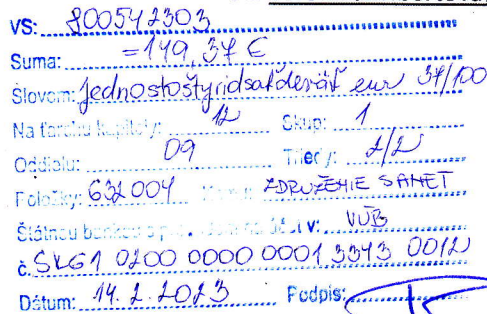 VS: 800542303
Suma: =149,37 €
Slovom: Jednostoštyridsaťdeväť eur 37/100
Na ťarchu kapitoly: 12 Skup: 1
Oddielu: 09 Triedy: 2/2
Položky: 632004 ZDRUŽENIE SANET
Štátnou bankou v: VÚB
č. SK61 0200 0000 0001 3343 0012
Dátum: 14. 2. 2023 Podpis: